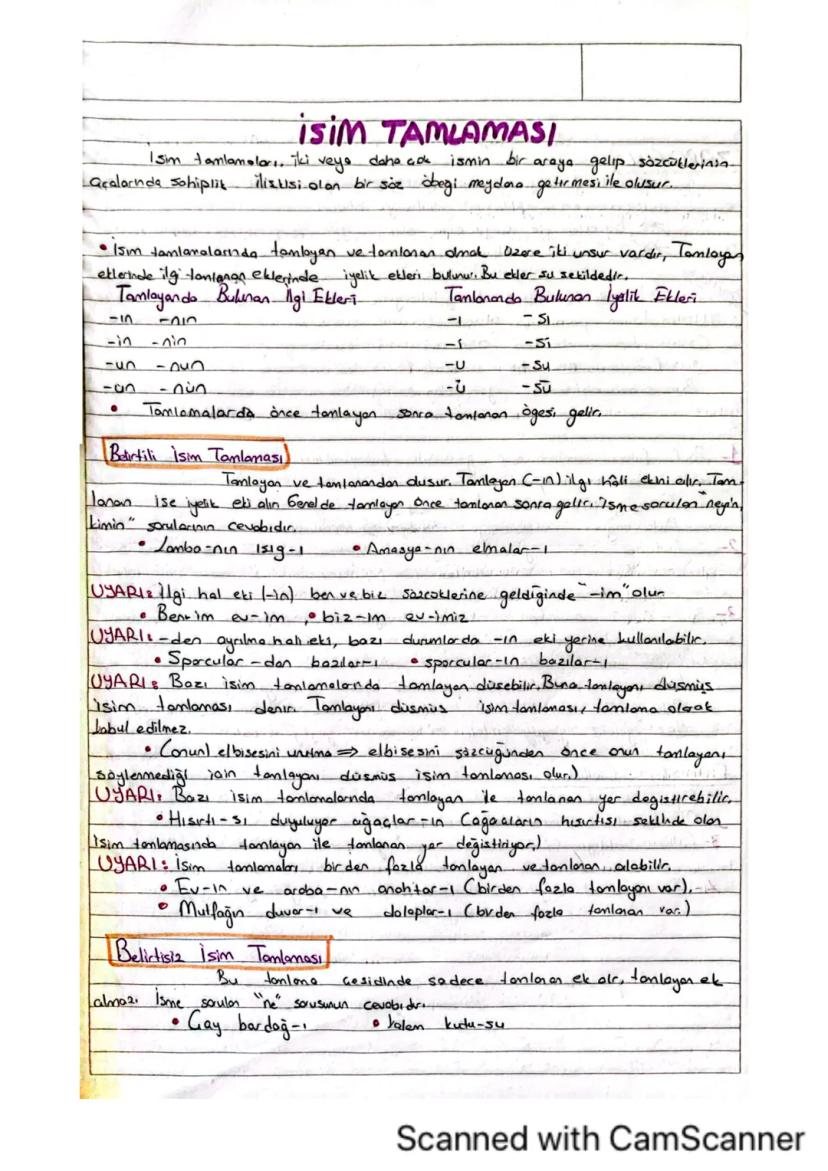 İSİM TAMLAMASI
İsim tamlamaları, iki veya daha çok ismin bir araya gelip sözcüklerinin
açalarında sahiplik ilişkisi olan bir söz öbeği meydana getirmesi ile oluşur.
• İsim tamlamalarında tamlayan ve tamlanan olmak üzere iki unsur vardır, Tamlayan
eklerinde ilgi tamlanan eklerinde iyelik ekleri bulunur. Bu ekler şu şekildedir.
Tamlayanda Bulunan İlgi Ekleri Tamlananda Bulunan İyelik Ekleri
-ın -nın -ı -sı
-in -nin -i -si
-un -nun -u -su
-ün -nün -ü -sü
• Tamlamalarda önce tamlayan sonra tamlanan ögesi gelir.
Belirtili İsim Tamlaması
Tamlayan ve tamlanandan oluşur. Tamlayan (-ın) ilgi hâli ekini alır, Tam-
lanan ise iyelik eki alır. Genelde tamlayan önce tamlanan sonra gelir. İsme sorulan "neyin,
kimin" sorularının cevabıdır.
• Lamba-nın ışığ-ı • Amasya-nın elmalar-ı
UYARI: İlgi hal eki (-in) ben ve biz sözcüklerine geldiğinde "-im" olur
• Ben-im ev-im • biz-im ev-imiz
UYARI: -den ayrılma hali eki, bazı durumlarda -ın eki yerine kullanılabilir.
• Sporcular-dan bazılar-ı • sporcular-ın bazılar-ı
UYARI: Bazı isim tamlamalarında tamlayan düşebilir. Buna tamlayanı düşmüş
isim tamlaması denir. Tamlayanı düşmüş isim tamlaması, tamlama olarak
kabul edilmez.
• (onun) elbisesini unutma ⇒ elbisesini sözcüğünden önce onun tamlayanı
söylenmediği için tamlayanı düşmüş isim tamlaması olur.)
UYARI: Bazı isim tamlamalarında tamlayan ile tamlanan yer değiştirebilir.
• Hışırtı-sı duyuluyor ağaçlar-ın (ağaçların hışırtısı şeklinde olan
isim tamlamasında tamlayan ile tamlanan yer değiştiriyor.)
UYARI: İsim tamlamaları birden fazla tamlayan ve tamlanan alabilir.
• Ev-in ve araba-nın anahtar-ı (birden fazla tamlayanı var).
• Mutfağın duvar-ı ve dolaplar-ı (birden fazla tamlanan var.)
Belirtisiz İsim Tamlaması
Bu tamlama çeşidinde sadece tamlanan ek alır, tamlayan ek
almaz. İsme sorulan "ne" sorusunun cevabıdır.
• Çay bardağ-ı • kalem kutu-su
Scanned with CamScanner